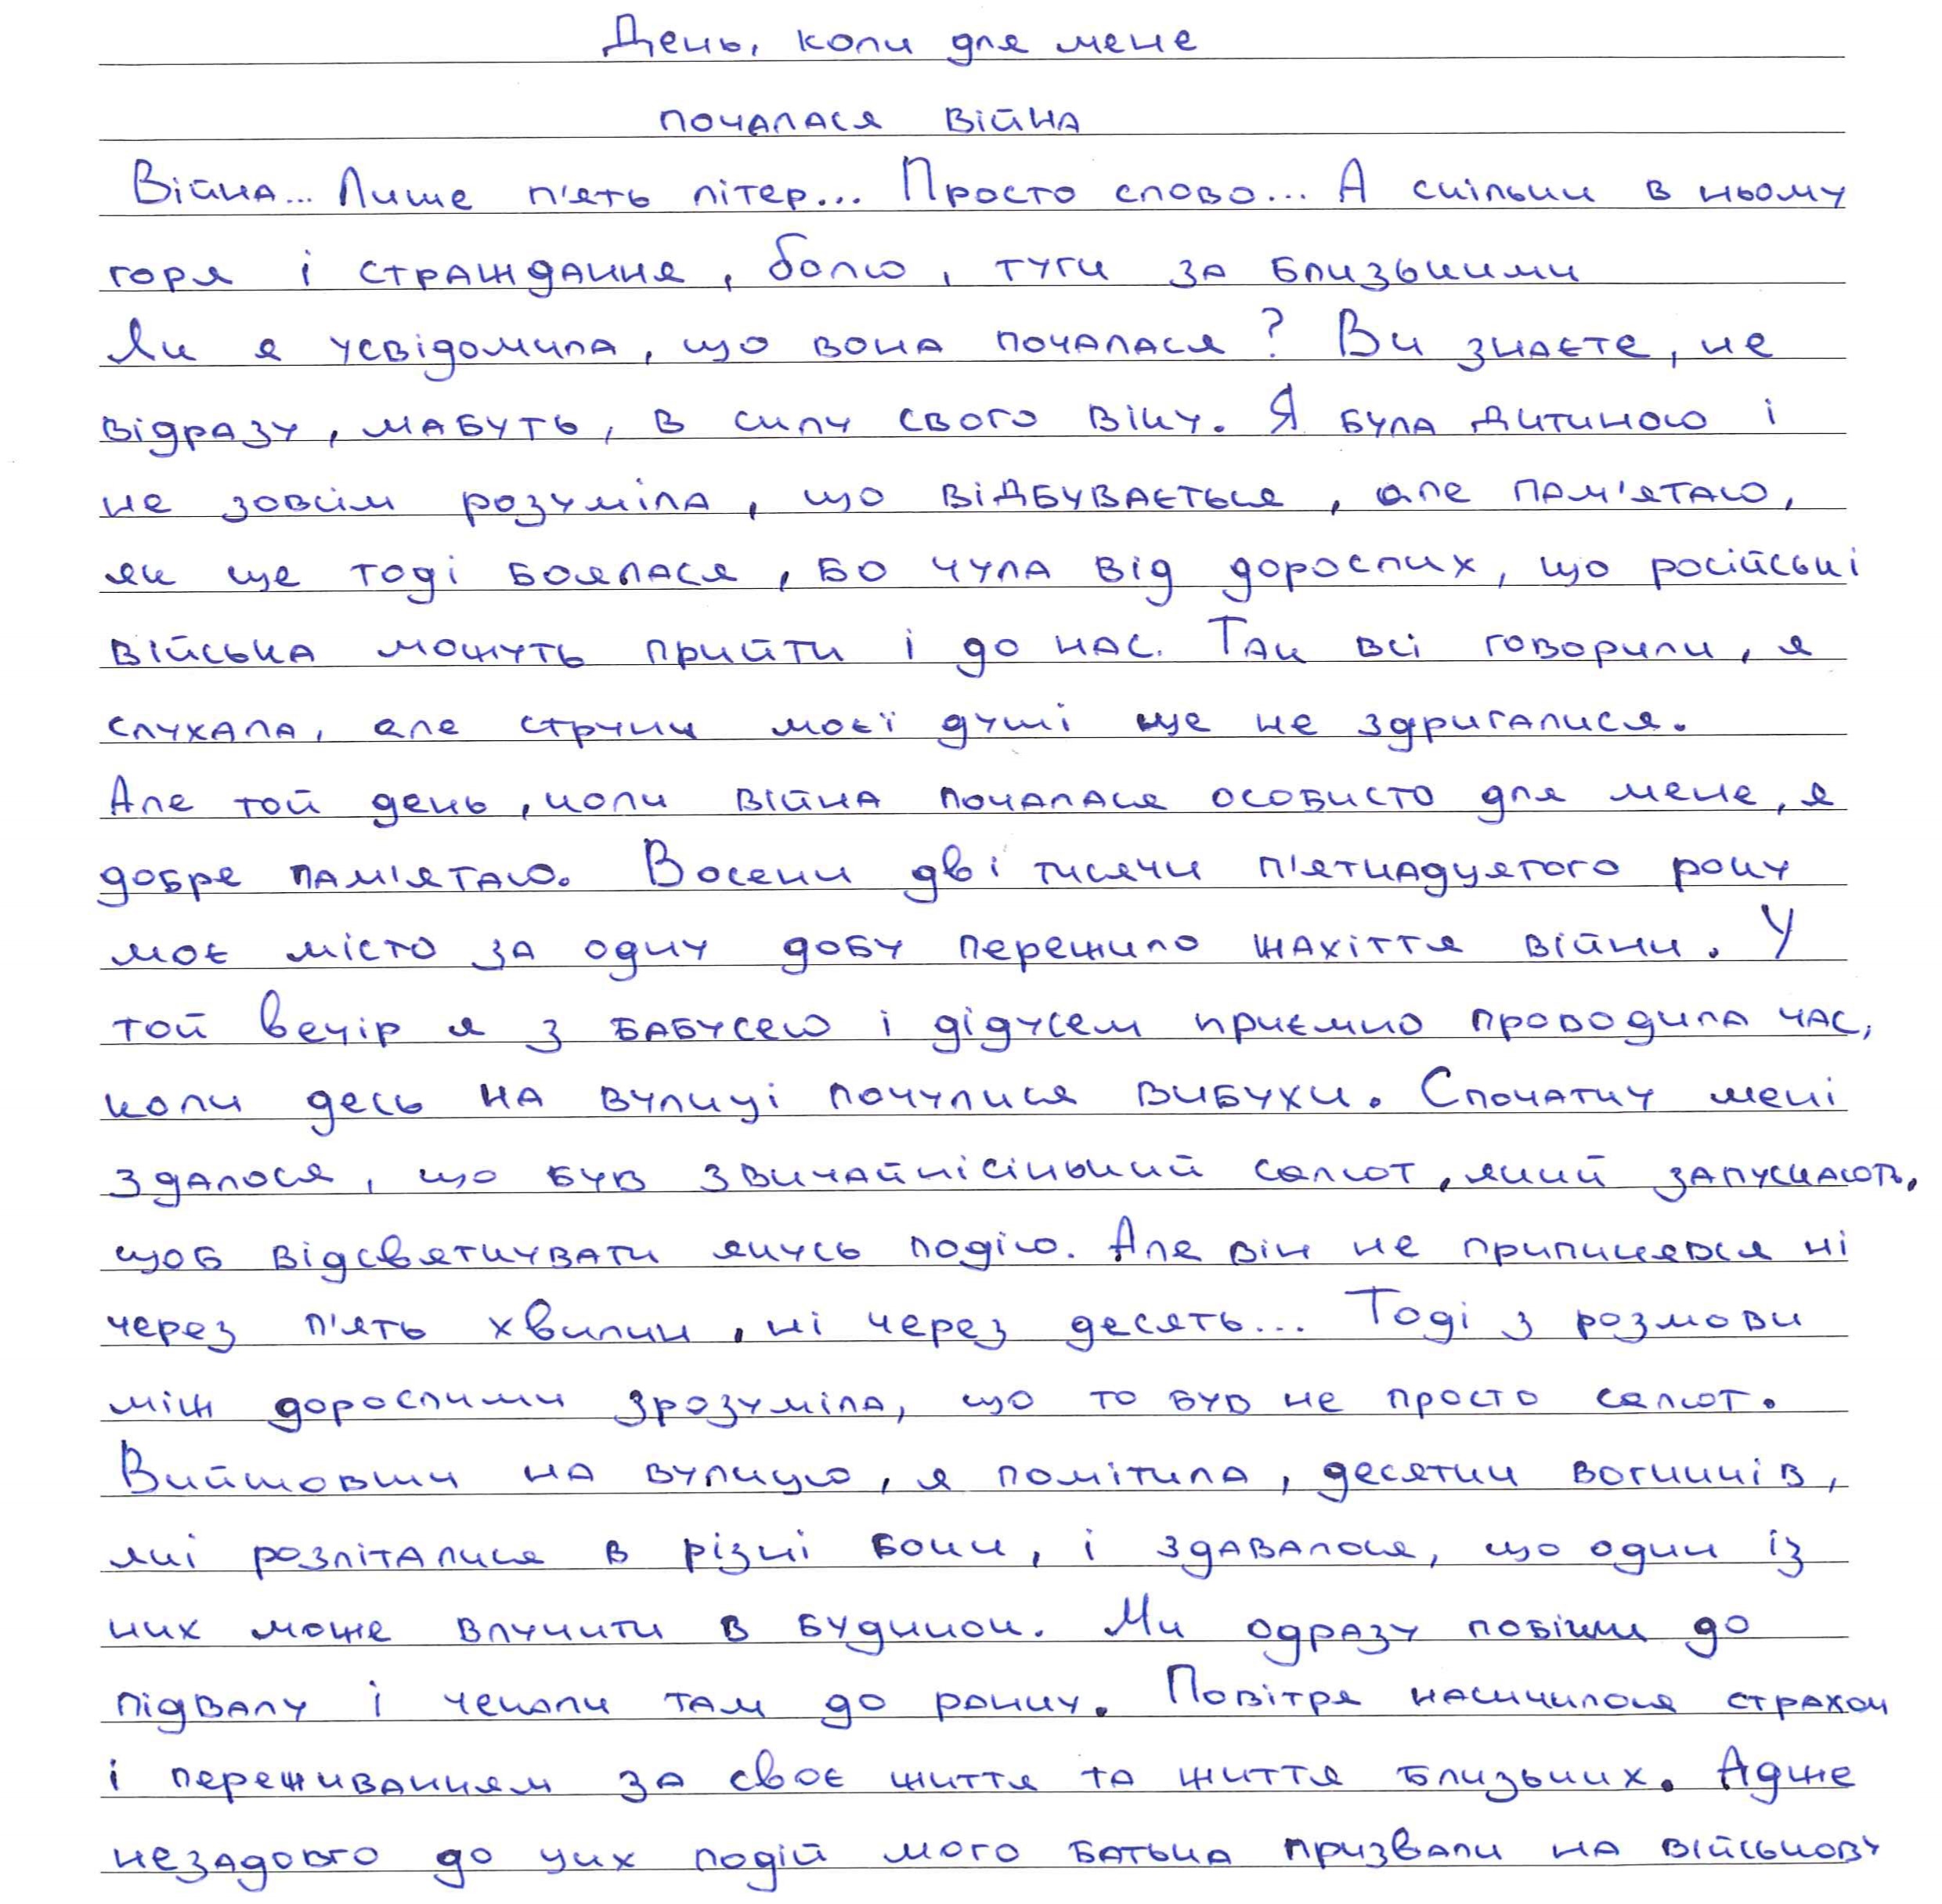 День, коли для мене
почалася війна
Війна... Лише п'ять літер... Просто слово... А скільки в ньому
горя і страждання, болю, туги за близькими
Чи я усвідомила, що вона почалася? Ви знаєте, не
відразу, мабуть, в силу свого віку. Я була дитиною і
не зовсім розуміла, що відбувається, але пам'ятаю,
як ще тоді боялася, бо чула від дорослих, що російські
війська можуть прийти і до нас. Так всі говорили, я
слухала, але струни моєї душі ще не здригалися.
Але той день, коли війна почалася особисто для мене, я
добре пам'ятаю. Восени дві тисячи п'ятнадцятого року
моє місто за одну добу пережило жахіття війни. У
той вечір я з бабусею і дідусем приємно проводила час,
коли десь на вулиці почулися вибухи. Спочатку мені
здалося, що був звичайнісінький салют, який запускають,
щоб відсвяткувати якусь подію. Але він не припинявся ні
через п'ять хвилин, ні через десять... Тоді з розмови
між дорослими зрозуміла, що то був не просто салют.
Вийшовши на вулицю, я помітила, десятки вогників,
які розліталися в різні боки, і здавалося, що один із
них може влучити в будинок. Ми одразу побігли до
підвалу і чекали там до ранку. Повітря насичилося страхом
і переживанням за своє життя та життя близьких. Адже
незадовго до цих подій мого батька призвали на військову